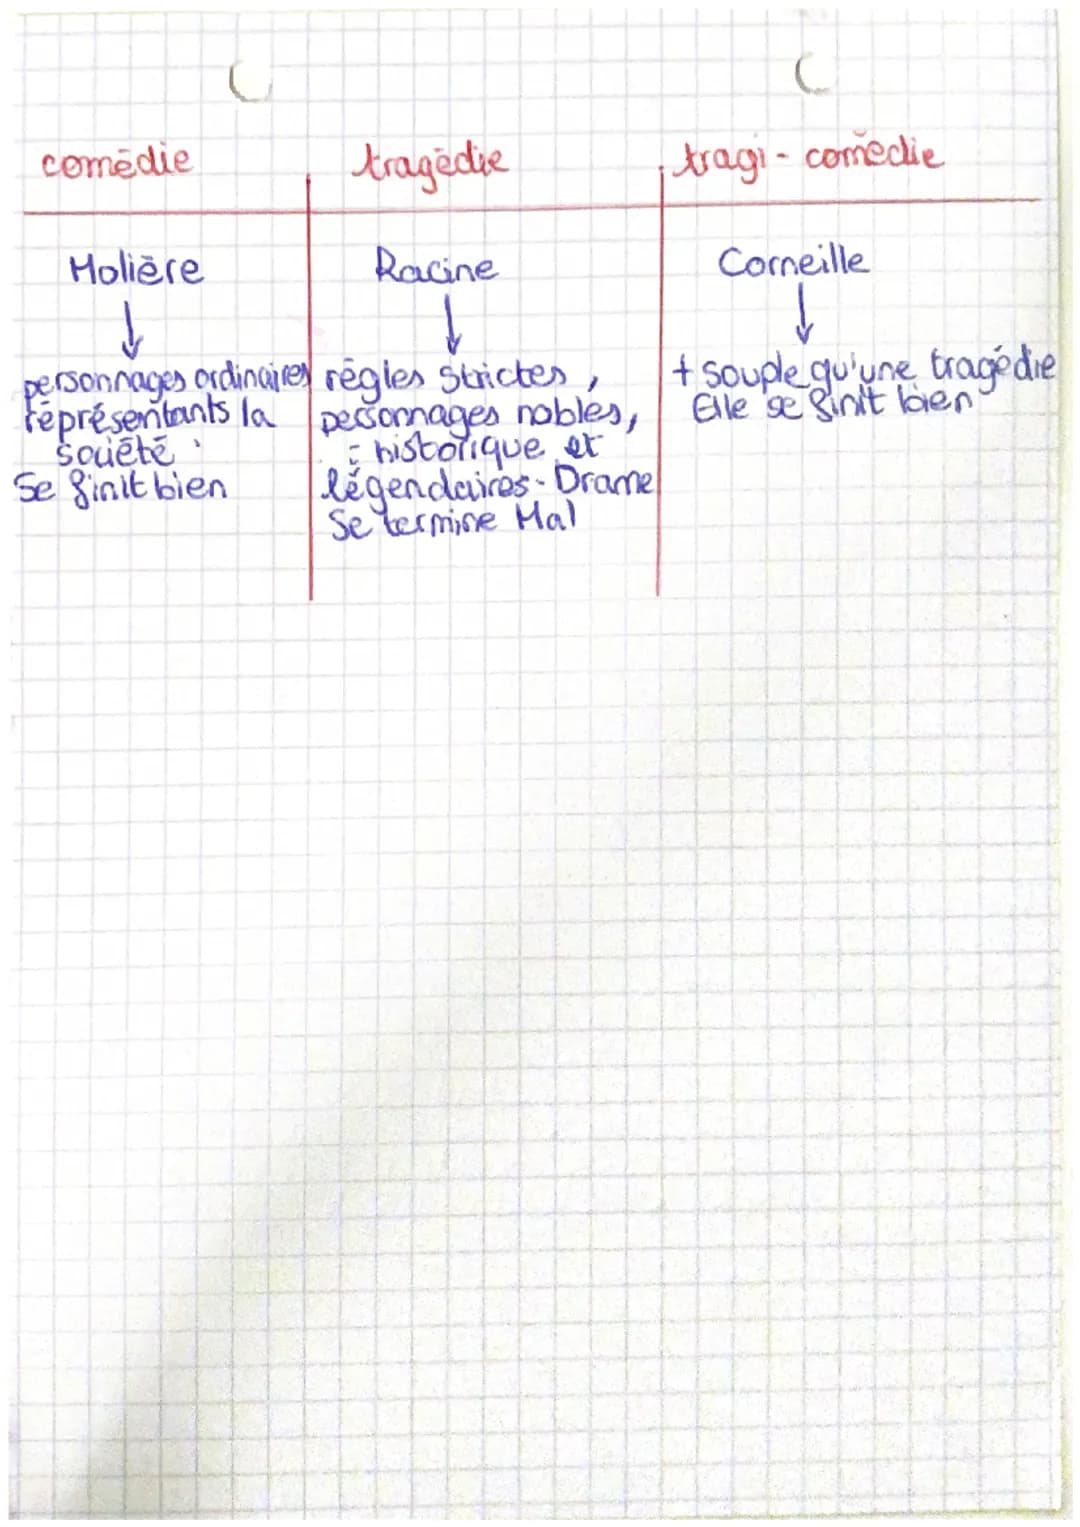 comédie
tragédie
tragi-comedie
Molière
Racine
Corneille
personnages ordinaires
réprésentants la
société.
Se finit bien
règles strictes,
personnages nobles,
historique et
légendaires - Drame
Se termine Mal
+ souple qu'une tragédie
Elle se finit bien